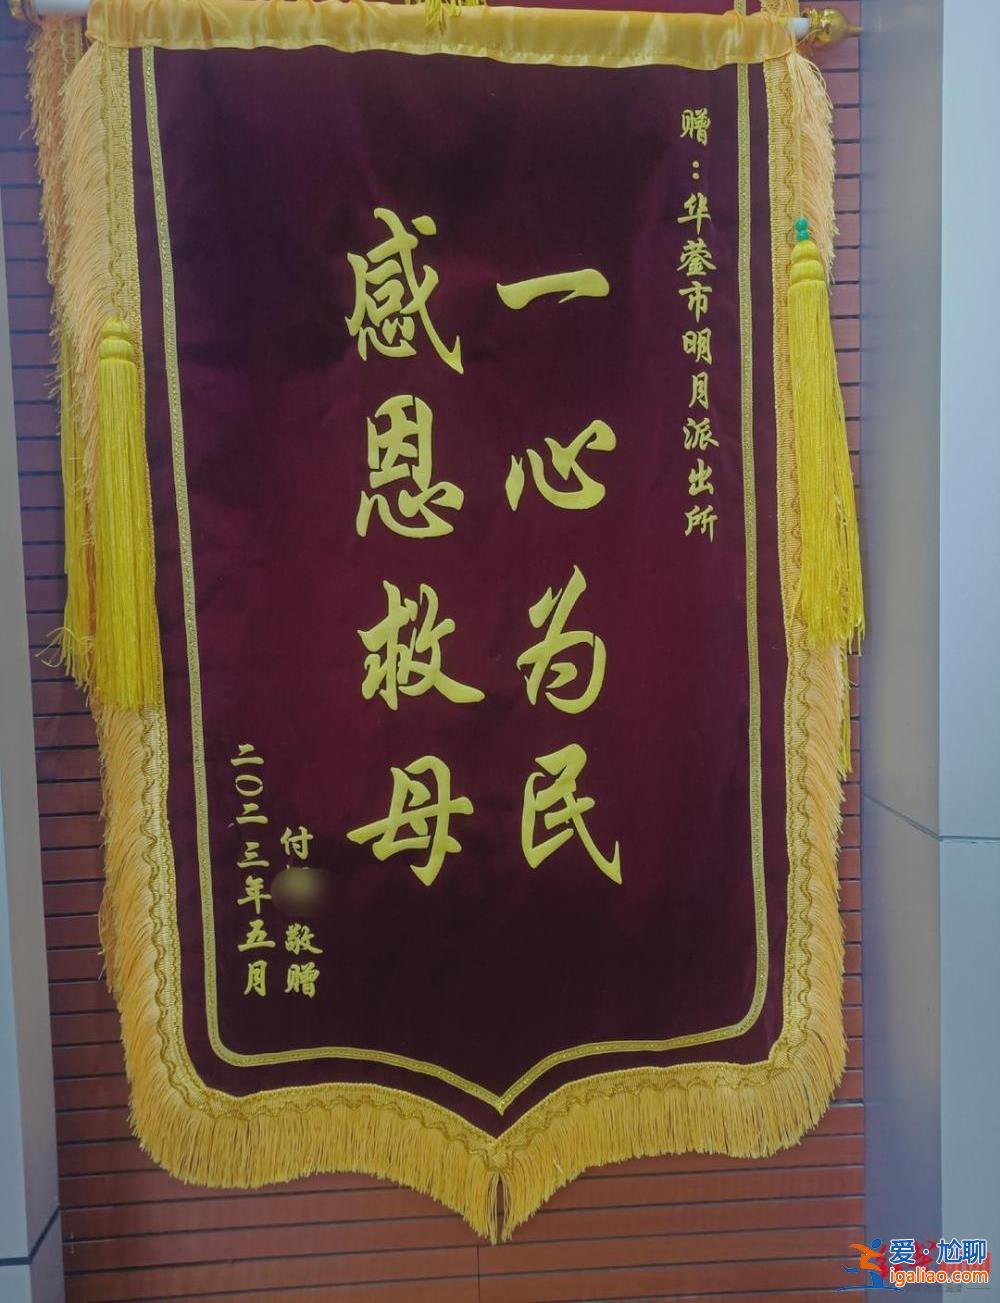 赠：华蓥市明月派出所
一心为民
感恩救母
付
敬赠
二〇二三年五月
爱·尬聊
igaliao.com